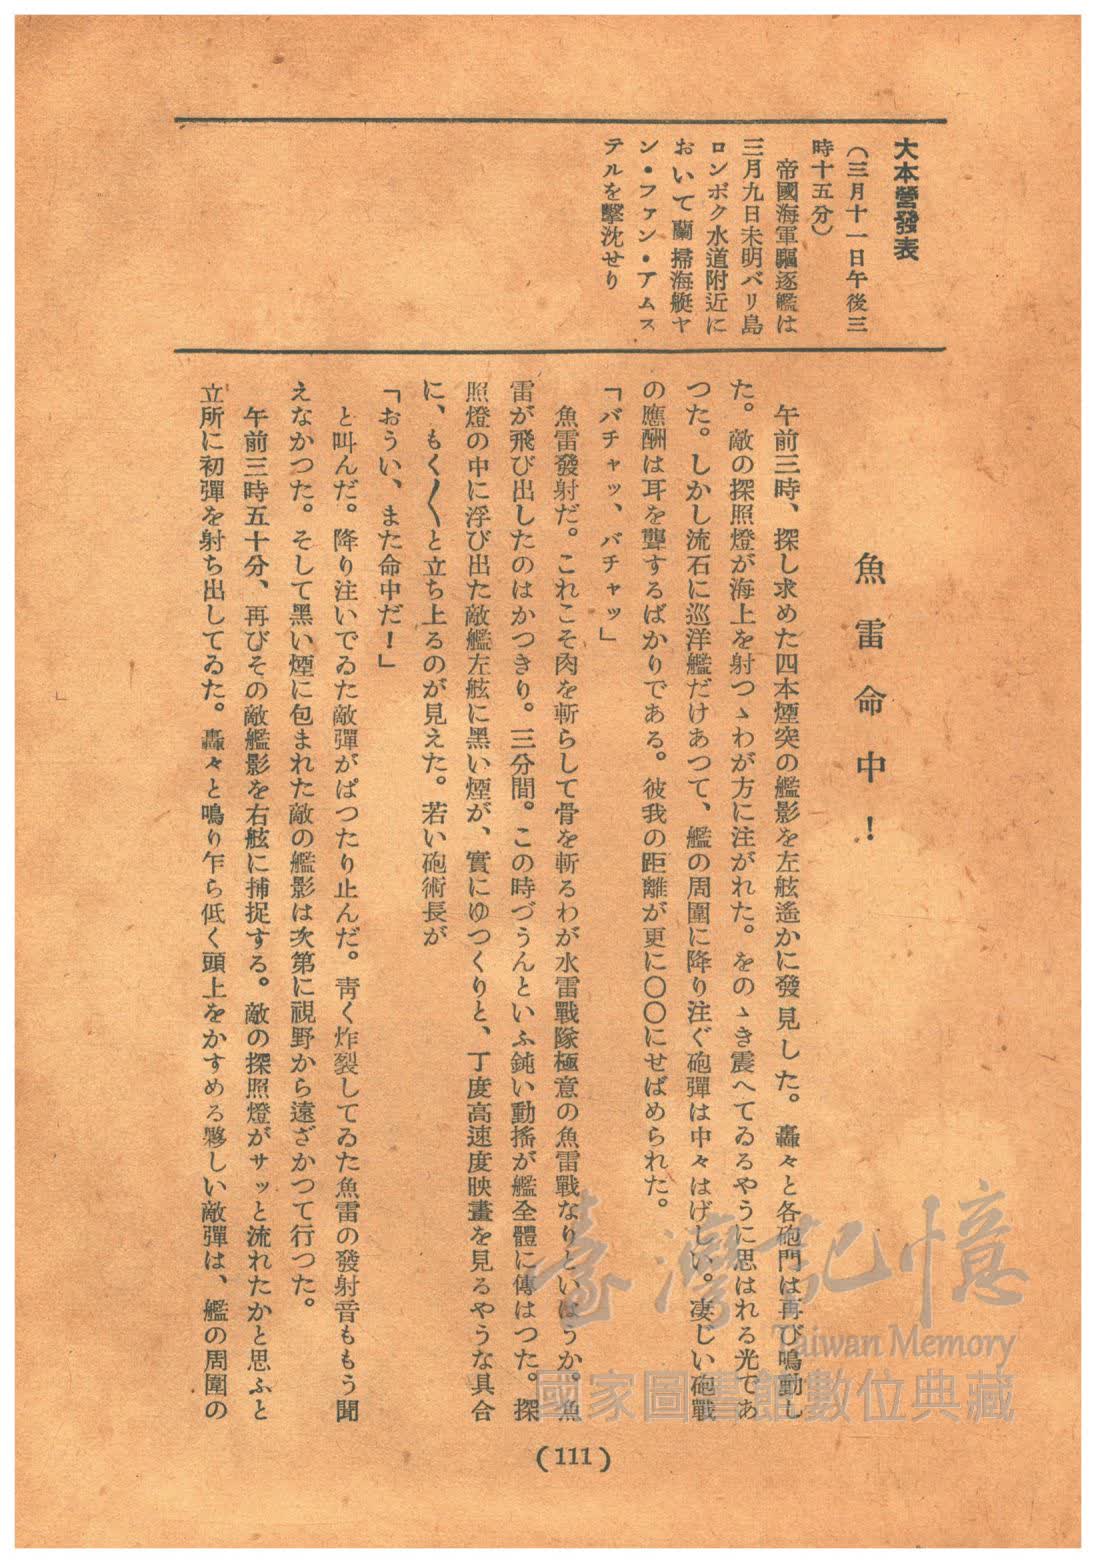 大本營發表
（三月十一日午後三
時十五分）
帝國海軍驅逐艦は
三月九日未明バリ島
ロンボク水道附近に
おいて蘭掃海艇ヤ
ン・ファン・アムス
テルを擊沈せり
魚雷命中！
午前三時、探し求めた四本煙突の艦影を左舷遙かに發見した。轟々と各砲門は再び鳴動し
た。敵の探照燈が海上を射つゝわが方に注がれた。をのゝき震へてゐるやうに思はれる光であ
つた。しかし流石に巡洋艦だけあつて、艦の周圍に降り注ぐ砲彈は中々はげしい。凄じい砲戰
の應酬は耳を聾するばかりである。彼我の距離が更に〇〇にせばめられた。
「バチャッ、バチャッ」
魚雷發射だ。これこそ肉を斬らして骨を斬るわが水雷戰隊極意の魚雷戰なりといはうか。魚
雷が飛び出したのはかつきり。三分間。この時づうんといふ鈍い動搖が艦全體に傳はつた。探
照燈の中に浮び出た敵艦左舷に黑い煙が、實にゆつくりと、丁度高速度映畫を見るやうな具合
に、もく〱と立ち上るのが見えた。若い砲術長が
「おうい、また命中だ！」
と叫んだ。降り注いでゐた敵彈がぱつたり止んだ。靑く炸裂してゐた魚雷の發射音ももう聞
えなかつた。そして黑い煙に包まれた敵の艦影は次第に視野から遠ざかつて行つた。
午前三時五十分、再びその敵艦影を右舷に捕捉する。敵の探照燈がサッと流れたかと思ふと
立所に初彈を射ち出してゐた。轟々と鳴り乍ら低く頭上をかすめる夥しい敵彈は、艦の周圍の
(111)
臺灣記憶
Taiwan Memory
國家圖書館數位典藏